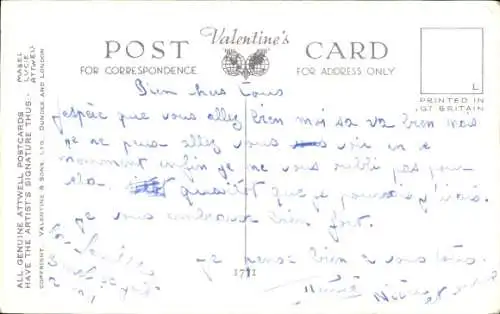 Valentine's
POST CARD
FOR CORRESPONDENCE
FOR ADDRESS ONLY
PRINTED IN
GT BRITAIN
L
MABEL
LUCIE
ATTWELL
ALL GENUINE ATTWELL POSTCARDS
HAVE THE ARTIST'S SIGNATURE THUS:-
COPYRIGHT. VALENTINE & SONS, LTD. DUNDEE AND LONDON
Bien tous
j'espère que vous allez bien moi sa va bien mais
je ne peux allez vous voir en ce
momment enfin je ne vous oubli pas pour
sla. quaitôt que je pourrais j'irais.
je vous embrasse bien fort.
je pense bien a vous tous
1711